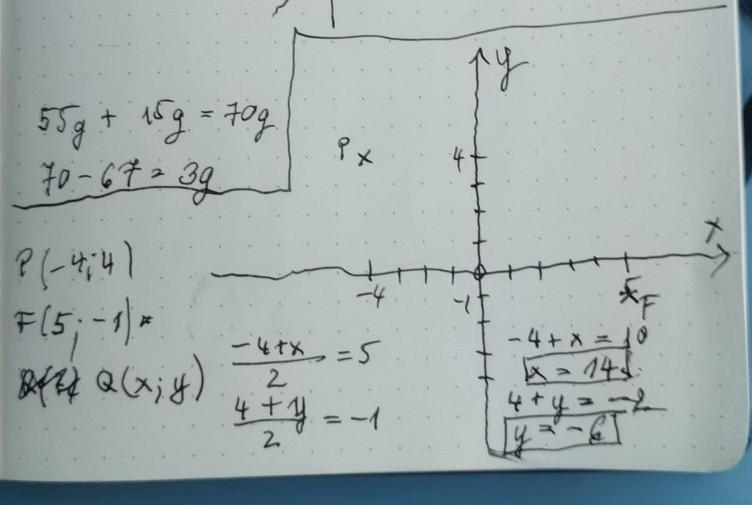 55g + 15g = 70g
70 - 67 = 3g
P(-4; 4)
F(5; -1)
Q(x; y)
-4+x
2
= 5
4+y
2
= -1
y
x
P x
4
-4
-1
5
x F
-4 + x = 10
x = 14
4 + y = -2
y = -6